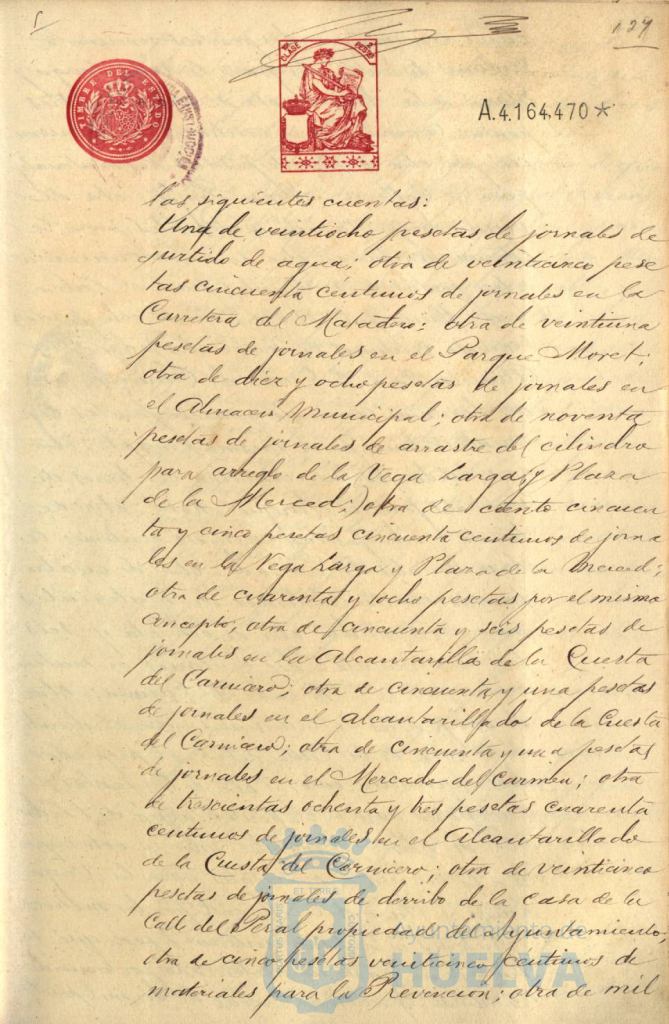 127
TIMBRE DEL ESTADO
CLASE
A.4.164.470*
las siguientes cuentas:
Una de veintiocho pesetas de jornales de
surtido de agua; otra de veinticinco pese
tas cincuenta céntimos de jornales en la
Carretera del Matadero: otra de veintiuna
pesetas de jornales en el Parque Moret;
otra de diez y ocho pesetas de jornales en
el Almacen Municipal; otra de noventa
pesetas de jornales de arrastre del cilindro
para arreglo de la Vega Larga y Plaza
de la Merced; otra de ciento cincuen
ta y cinco pesetas cincuenta centimos de jorna
les en la Vega Larga y Plaza de la Merced;
otra de cuarenta y ocho pesetas por el mismo
concepto; otra de cincuenta y seis pesetas de
jornales en la Alcantarilla de la Cuesta
del Carnicero; otra de cincuenta y una pesetas
de jornales en el alcantarillado de la Cuesta
del Carnicero; otra de cincuenta y una pesetas
de jornales en el Mercado del Carmen; otra
de trescientas ochenta y tres pesetas cuarenta
centimos de jornales en el Alcantarillado
de la Cuesta del Carnicero; otra de veinticinco
pesetas de jornales de derribo de la casa de la
Calle del Peral propiedad del Ayuntamiento,
otra de cinco pesetas veinticinco centimos de
materiales para la Prevencion; otra de mil
Ayuntamiento de
HUELVA